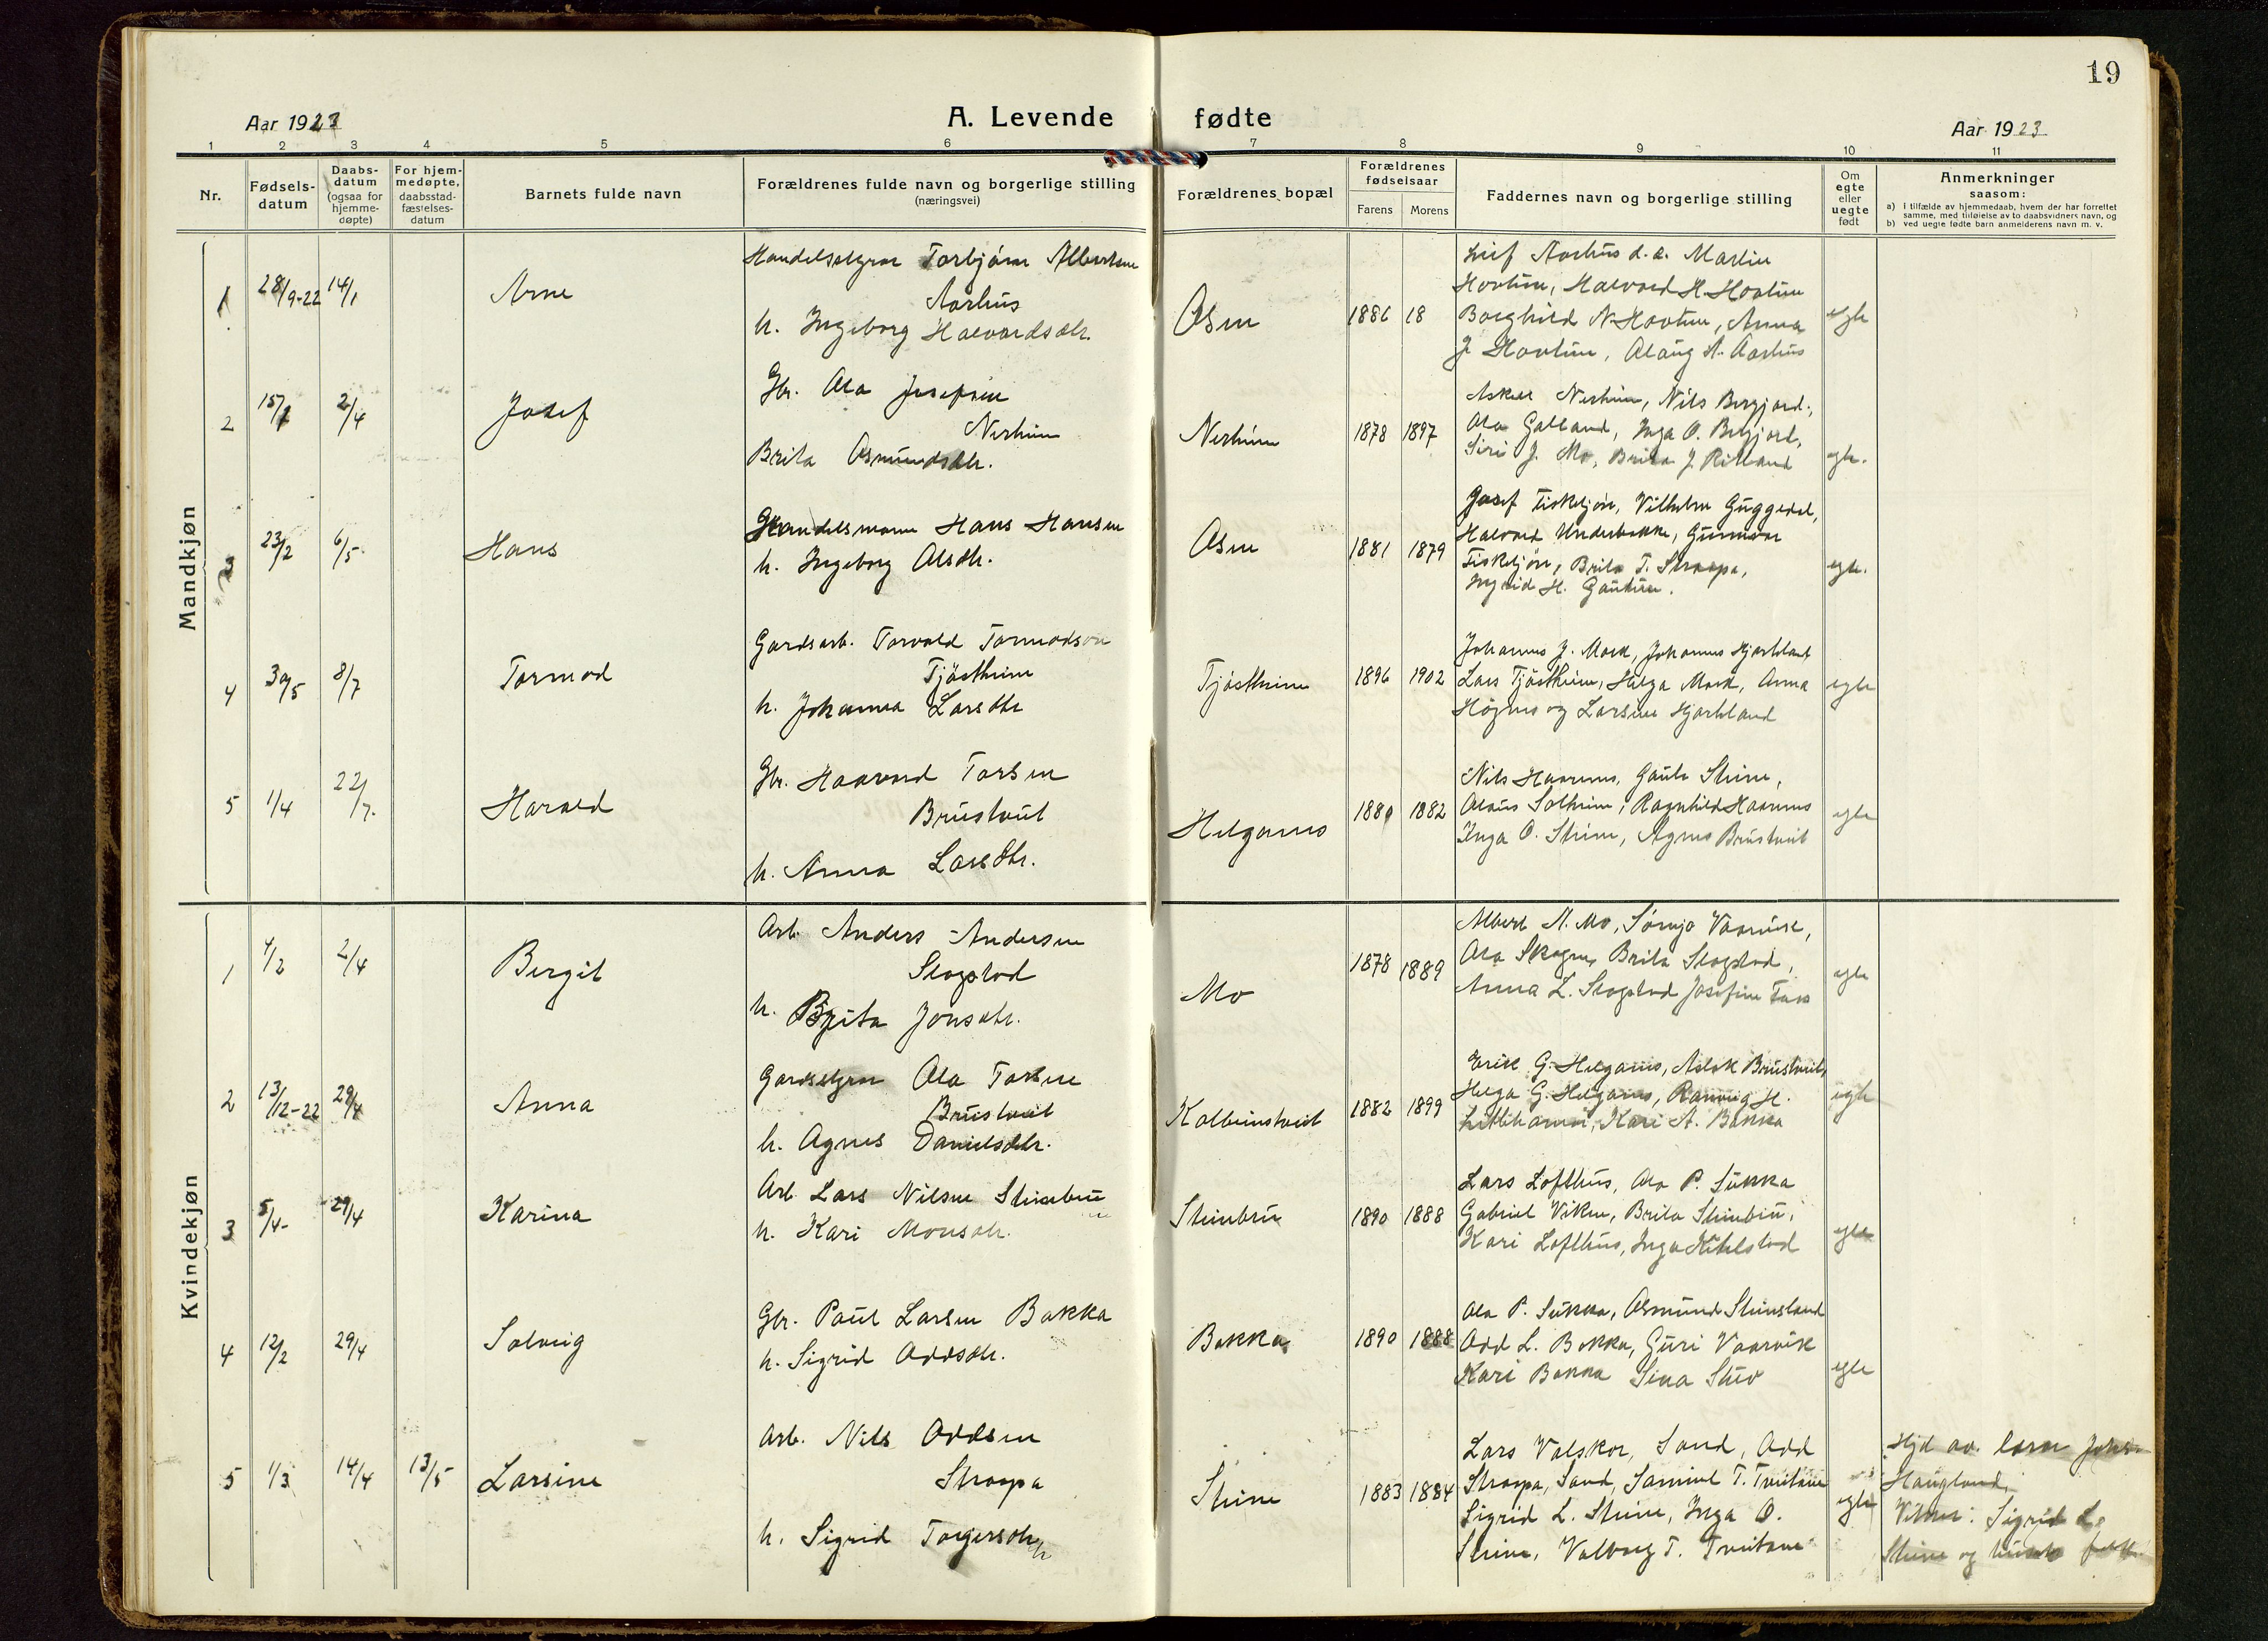 19
Aar 1923
A. Levende fødte
Aar 1923
1 2 3 4 5 6 7 8 9 10 11
Nr.
Fødsels-
datum
Daabs-
datum
(ogsaa for
hjemme-
døpte)
For hjem-
medøpte,
daabsstad-
fæstelses-
datum
Barnets fulde navn
Forældrenes fulde navn og borgerlige stilling
(næringsvei)
Forældrenes bopæl
Forældrenes
fødselsaar
Farens Morens
Faddernes navn og borgerlige stilling
Om
egte
eller
uegte
født
Anmerkninger
saasom:
a) i tilfælde av hjemmedaab, hvem der har forrettet
samme, med tilføielse av to daabsvidners navn, og
b) ved uegte fødte barn anmelderens navn m. v.
Mandkjøn
1 28/9-22 14/1 Arne
Torbjørn
Aarhus
h. Ingeborg Halvardsdtr.
Osen 1886 18
Leif Aarhus d. e. Martin
Hovtun, Halvard H. Hovtun
Borghild N. Hovtun, Anna
J. Hovtun, A. Aarhus
egte
2 15/1 2/4 Josef
Gbr. Ola Josefsen
Nerheim
Brita Osmundsdtr.
Nerheim 1878 1897
Nerheim, Nils Bergjord,
Ola Galland, Inga O. Bergjord,
Siri J. Mo, Brita J. Rilland
egte.
3 23/2 6/5 Hans
Handelsmann Hans Hansen
h. Ingeborg Olsdtr.
Osen 1881 1879
Josef Fisketjøn, Vilhelm Guggedal,
Halvard Underbakke, Gunnvor
Fisketjøn, Brita T. Straapa,
Ingrid H.
egte.
4 30/5 8/7 Tormod
Gardsarb. Torvald Tormodson
Tjøstheim
h. Johanna Larsdtr
Tjøstheim 1896 1902
Johannes J. Mork, Johannes Hjorteland
Lars Tjøstheim, Helga Mork, Anna
og Larsine Hjorteland
egte
5 1/4 22/7. Harald
Gbr. Haavard Torsen
Brustveit
h. Anna Larsdtr.
Helganes 1880 1882
Nils Gaute Steine,
Solheim, Ragnhild
Inga O. Steine, Agnes Brustveit
egte
Kvindekjøn
1 4/2 2/4 Bergit
Arb. Anders Andersen
Skogstad
h. Brita Jonsdtr.
Mo 1878 1889
Albert N. Mo,
Ola Brita Skogstad,
Anna L. Skogstad Josefine
egte
2 13/12-22 29/4 Anna
Ola Torsen
Brustveit
h. Agnes Danielsdtr.
Kolbeinstveit 1882 1899
Erik G. Helganes, Aslak Brustveit,
Helga G. Helganes, Ranveig H.
Kari A. Bakka
egte
3 5/4- 29/4 Karina
Arb. Lars Nilsen Steinbru
h. Kari Monsdtr.
Steinbru 1890 1888
Lars Lofthus, Ola P. Sukka
Gabriel Viken, Brita Steinbru,
Kari Lofthus, Inga
egte
4 12/2 29/4 Solveig
Gbr. Paul Larsen Bakka
h. Sigrid Oddsdtr.
Bakka 1890 1888
Ola P. Sukka, Osmund Steinsland
Odd L. Bakka, Guri Vaarvik
Kari Bakka Sina
egte
5 1/3 14/4 13/5 Larsine
Arb. Nils Oddsen
Straapa
h. Sigrid Torgersdtr
Steine 1883 1884
Lars Valskor, Sand, Odd
Straapa, Sand, Samuel T. Tveitane
Sigrid L. Steine, Inga O.
Steine, Valborg T. Tveitane
egte
Hjd av.
Haugland,
Vitner: Sigrid L.
Steine og